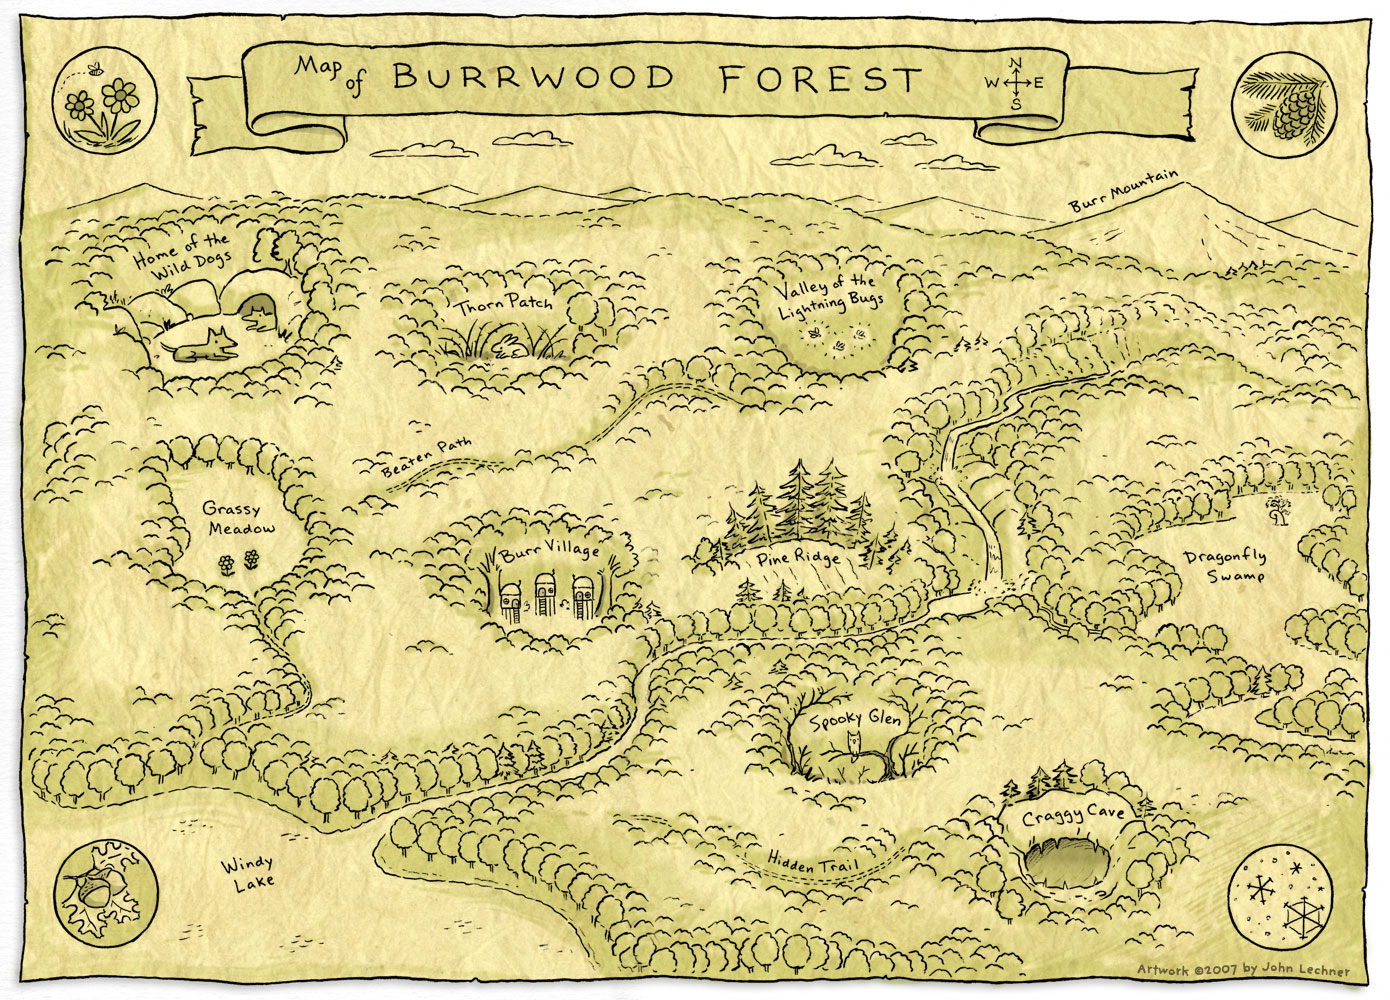 Map of BURRWOOD FOREST
N
W E
S
Burr Mountain
Home of the
Wild Dogs
Thorn Patch
Valley of the
Lightning Bugs
Beaten Path
Grassy
Meadow
Burr Village
Pine Ridge
Dragonfly
Swamp
Spooky Glen
Craggy Cave
Hidden Trail
Windy
Lake
Artwork ©2007 by John Lechner